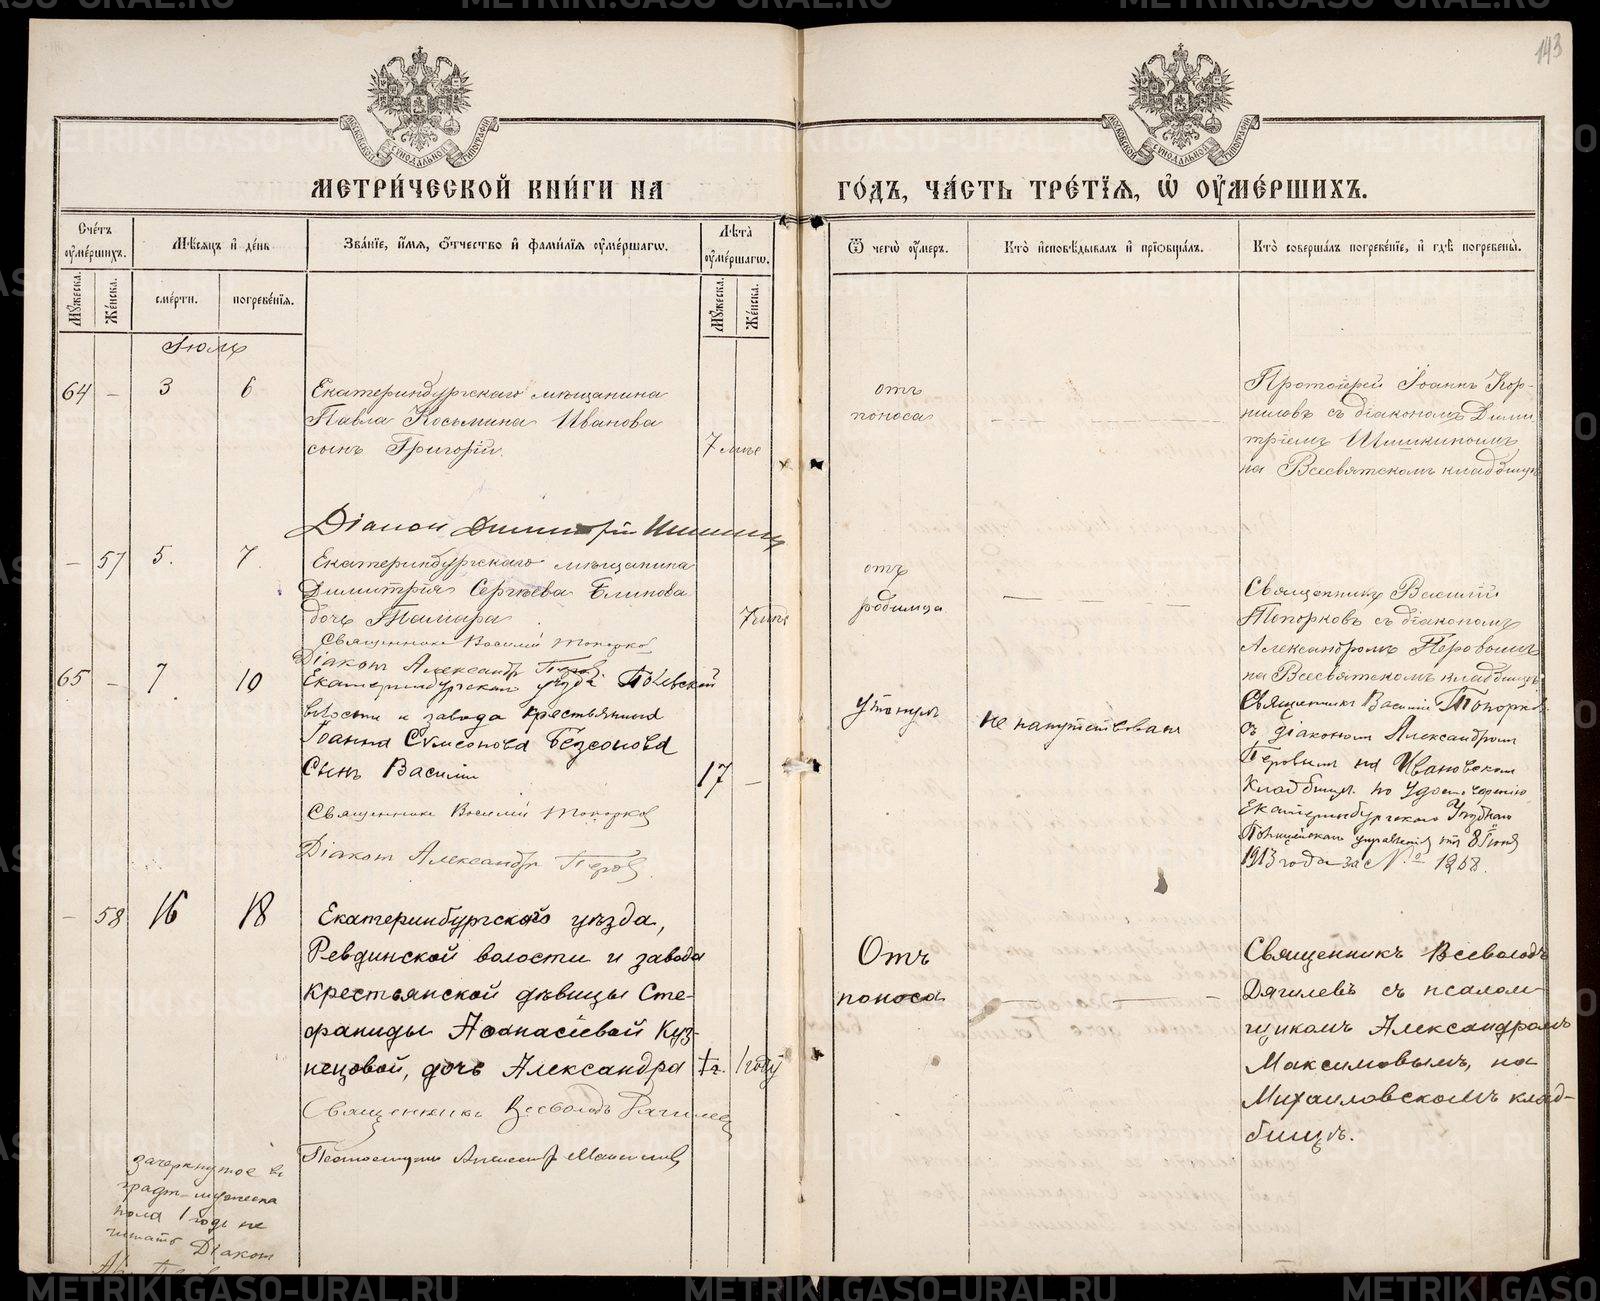 143
МОСКОВСКОЙ СѴНОДАЛЬНОЙ ТИПОГРАФІИ
МОСКОВСКОЙ СѴНОДАЛЬНОЙ ТИПОГРАФІИ
МЕТРИ́ЧЕСКОЙ КНИ́ГИ НА
ГО́ДЪ, ЧА́СТЬ ТРЕ́ТЇѦ, Ѡ҆ ОУ҆МЕ́РШИХЪ.
Сче́тъ оу҆ме́ршихъ.
Мѣ́сяцъ и҆ де́нь
Зва́нїе, и҆́мя, ѻ҆́тчество и҆ фами́лїя оу҆ме́ршагѡ.
Лѣ́та оу҆ме́ршагѡ.
Ѿ чегѡ̀ оу҆́меръ.
Кто̀ и҆сповѣ́дывалъ и҆ прїѡбща́лъ.
Кто̀ соверша́лъ погребе́нїе, и҆ гдѣ̀ погребены̀.
Мꙋ́жеска.
Же́нска.
сме́рти.
погребе́нїя.
Мꙋ́жеска.
Же́нска.
Іюль
64 - 3 6
Екатеринбургскаго мѣщанина
Павла Косьмина Иванова
сынъ Григорій.
7 мце
отъ
поноса
Протоіерей Іоаннъ Кор-
ниловъ съ діакономъ Дими-
тріемъ Шишкинымъ
на Всесвятскомъ кладбищѣ
Діакон Димитрій Шишкин
- 57 5. 7.
Екатеринбургскаго мѣщанина
Димитрія Сергѣева Блинова
дочь Тамара
отъ
родимца
Священникъ Василій
Топорковъ съ діакономъ
Александромъ Перовымъ
на Всесвятскомъ кладбищѣ
Священникъ Василій Топорков
Діакон Александр Перов
65 - 7 10
Екатеринбургскаго уѣзда
волости и завода крестьянина
Іоанна Сѵмеонова Безсонова
Сынъ Василій
17 -
утонулъ
не напутствован
Священникъ Василій Топорков
съ діаконом Александром
Перовым на Ивановском
Кладбищѣ по удостоверенію
Екатеринбургскаго Уѣзднаго
Полицейскаго управленія от 8 Іюля
1913 года за № 1268.
Священник Василій Топорков
Діакон Александр Перов
- 58 16 18
Екатеринбургскаго уѣзда,
Ревдинской волости и завода
крестьянской дѣвицы Сте-
фаниды Аѳанасіевой Куз-
нецовой, дочь Александра
1 г. 1 году
Отъ
поноса
Священникъ Всеволодъ
Дягилевъ съ псалом-
щикомъ Александромъ
Максимовымъ, на
Михаиловскомъ клад-
бищѣ.
Священникъ Всеволодъ Дягилев
Псаломщикъ Александр Максимов
зачеркнутое въ
граф. мужеска
пола 1 годъ не
читать Діакон